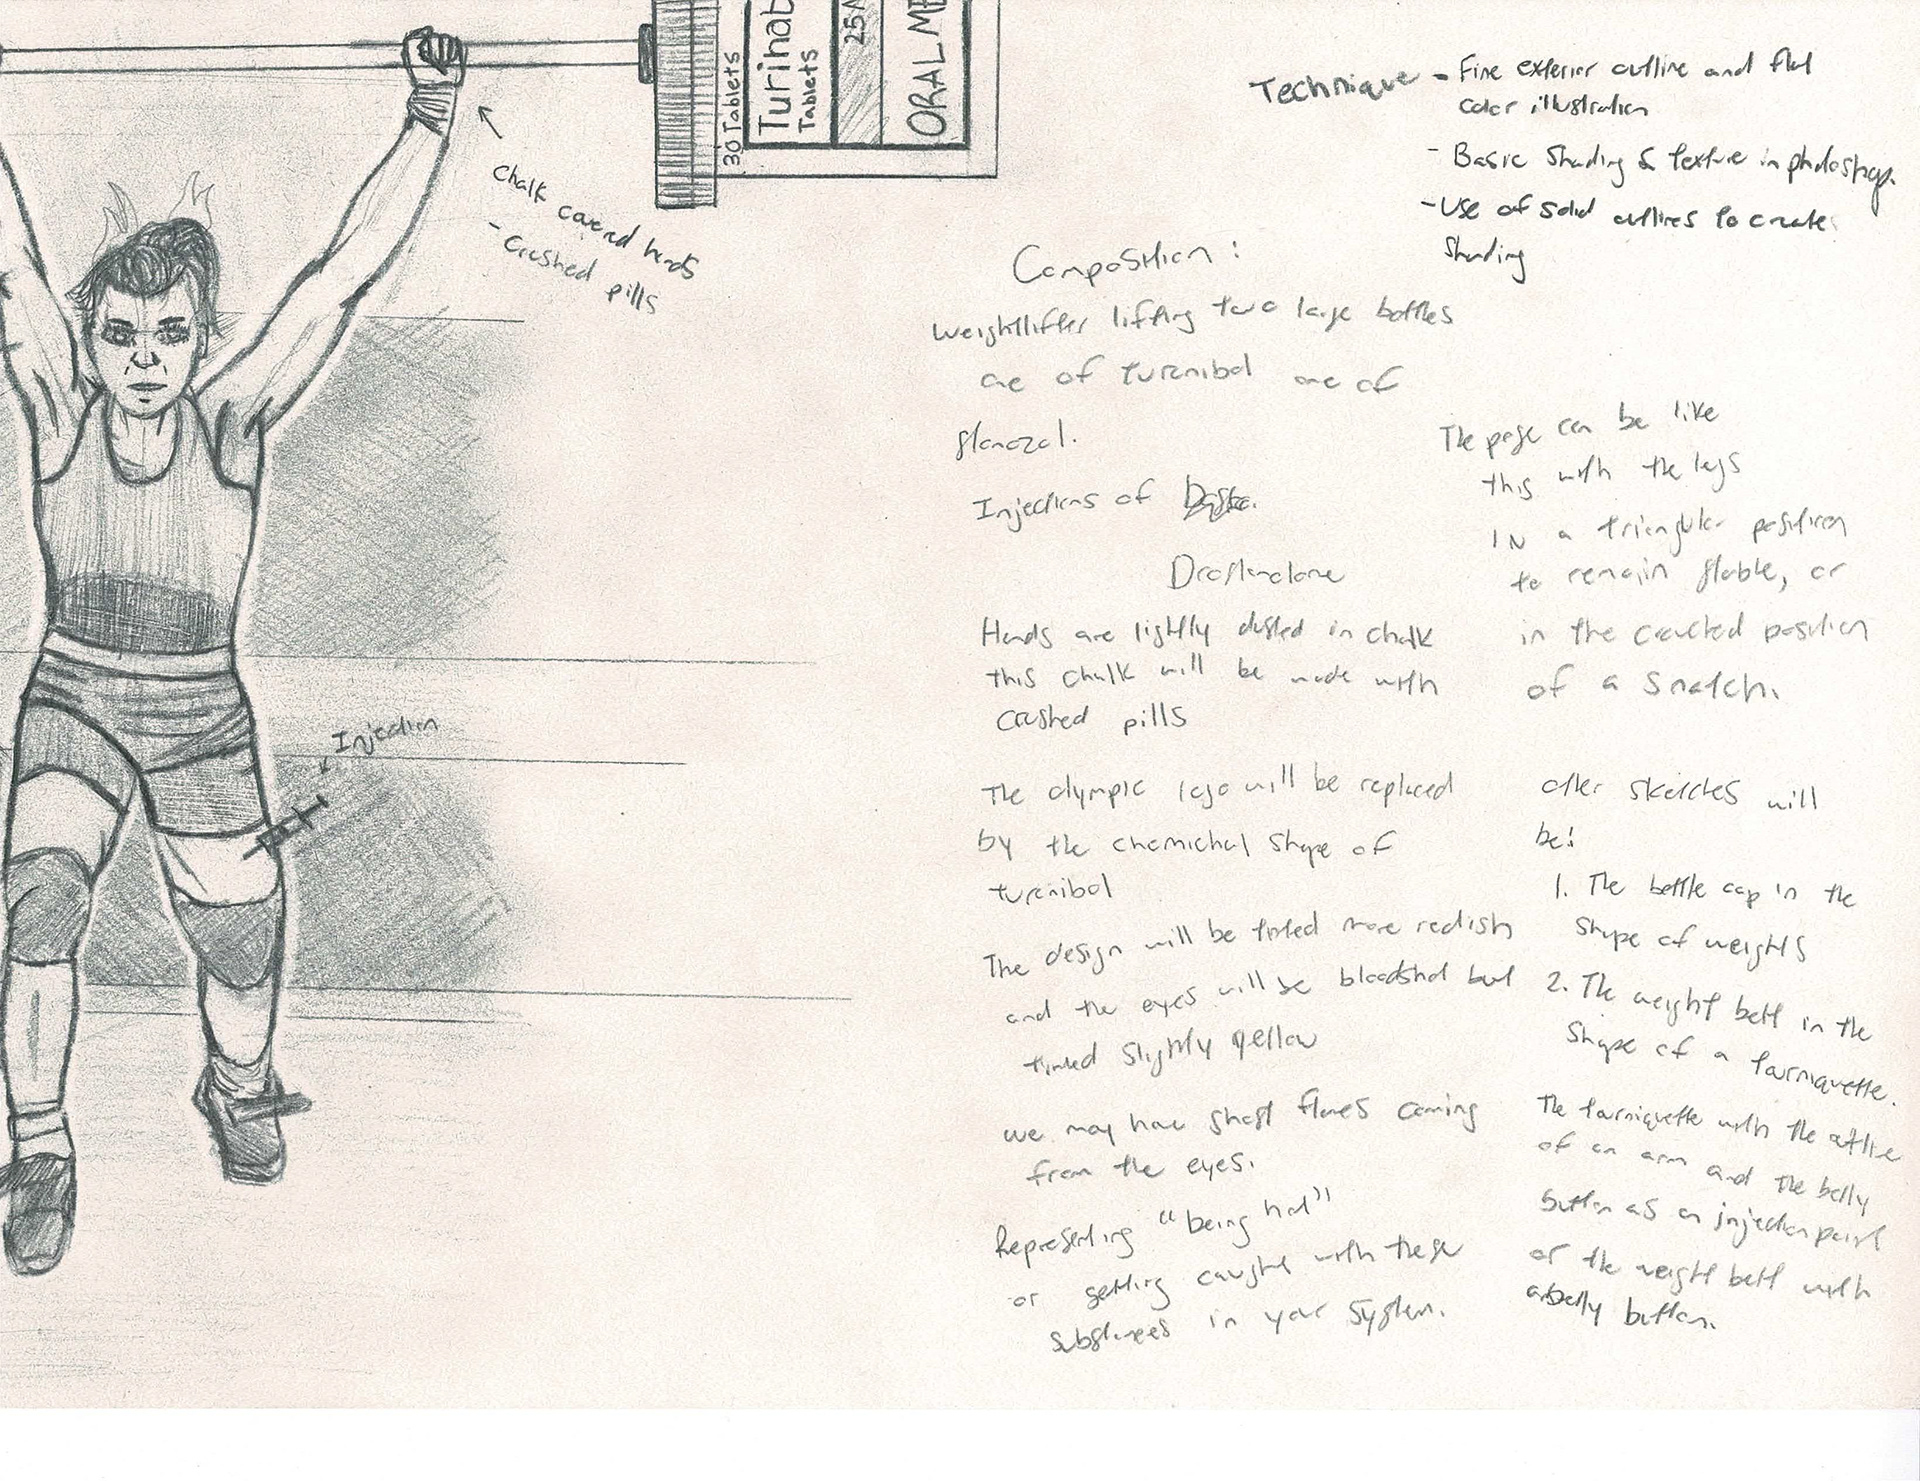 30 Tablets
Turinab
Tablets
25M
ORAL ME
Chalk covered hands
- Crushed pills
Injection
Technique - Fine exterior outline and flat
color illustration
- Basic Shading & texture in photoshop.
- Use of solid outlines to create
Shading
Composition:
Weightlifter lifting two large bottles
one of turinibol one of
Stanozol.
Injections of
Drostanolone
Hands are lightly dusted in chalk
this chalk will be made with
crushed pills
The olympic logo will be replaced
by the chemichal shape of
turinibol
The design will be tinted more redish
and the eyes will be bloodshot but
tinted slightly yellow
we may have ghost flames coming
from the eyes.
Representing "being hot"
or getting caught with these
substances in your system.
The page can be like
this with the legs
IN a triangular position
to remain stable, or
in the crouched position
of a snatch.
other sketches will
be:
1. The bottle cap in the
shape of weights
2. The weight belt in the
shape of a tourniquette.
The tourniquette with the outline
of an arm and the belly
button as an injection point
or the weight belt with
a belly button.